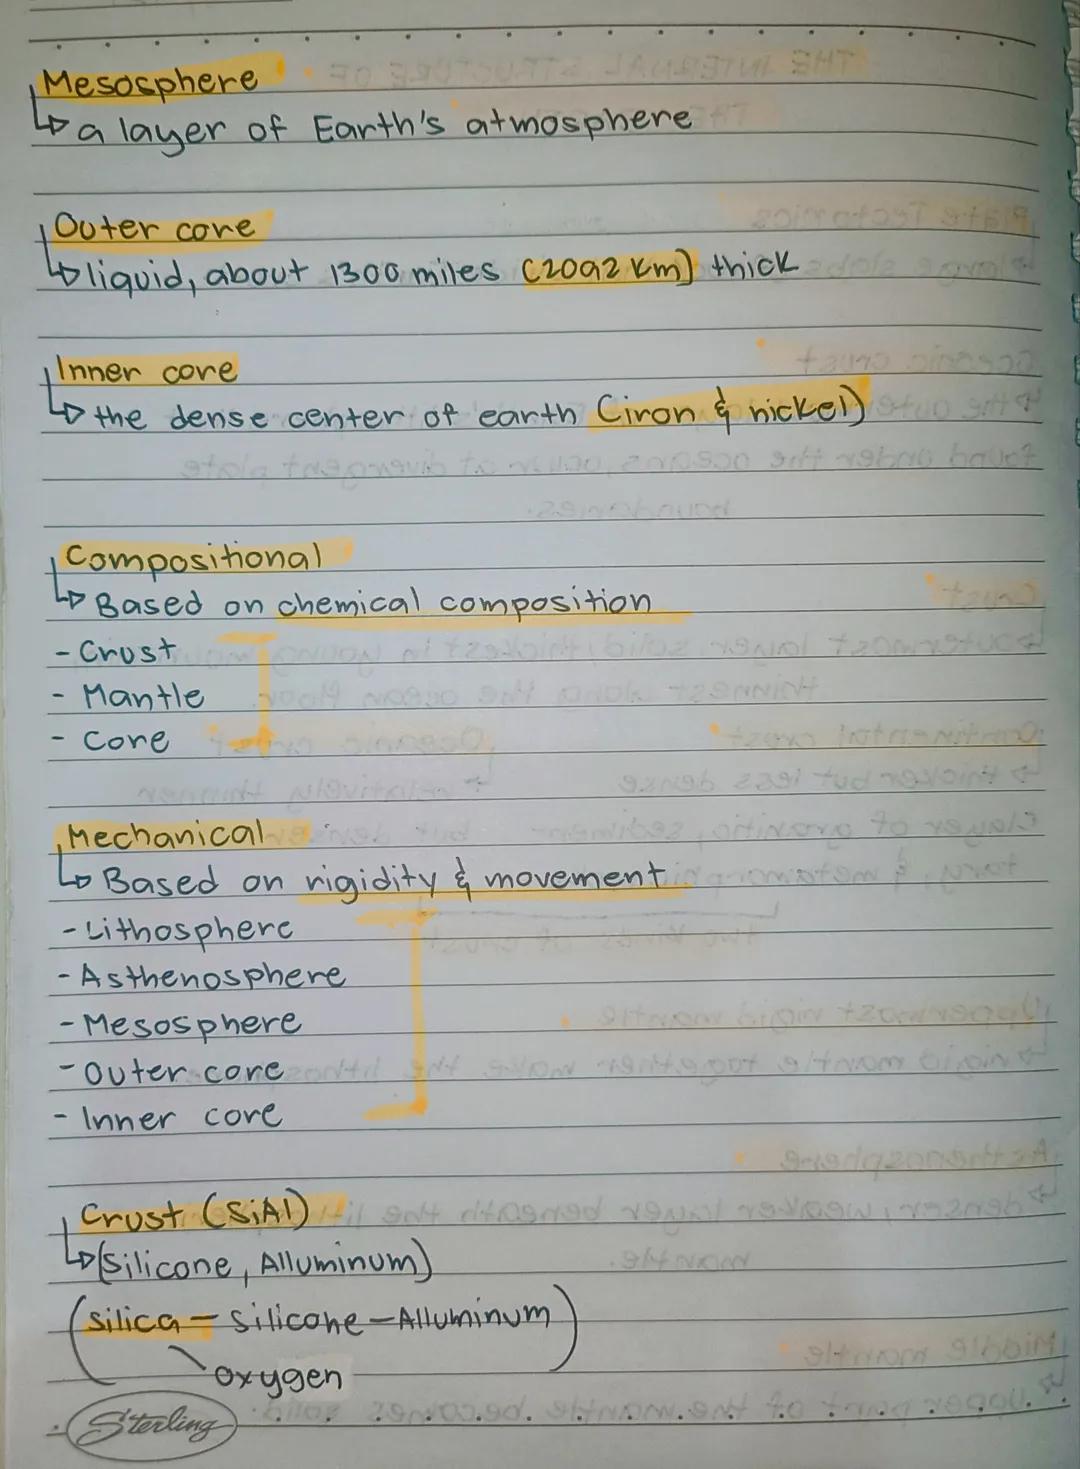 Mesosphere
a layer of Earth's atmosphere
Outer core
liquid, about 1300 miles (2092 km) thick
Inner core
the dense center of earth (iron & nickel)
Compositional
Based on chemical composition
- Crust
- Mantle
- Core
Mechanical
Based on rigidity & movement
- Lithosphere
- Asthenosphere
- Mesosphere
- Outer core
- Inner core
Crust (SiAl)
(silicone, Alluminum)
(silica - silicone - Alluminum)
oxygen
Sterling